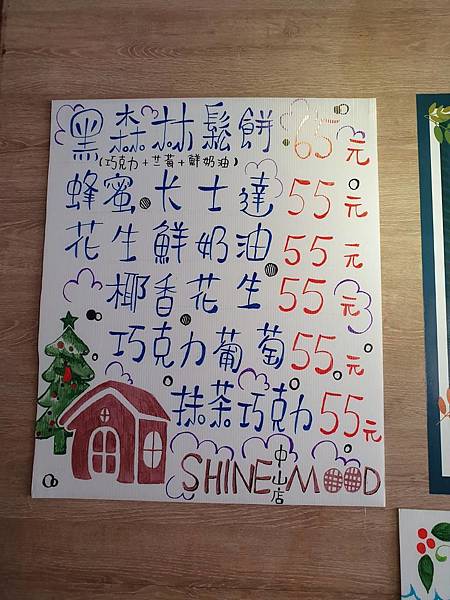 黑森林鬆餅 65元
(巧克力+艾莓+鮮奶油)
蜂蜜卡士達 55元
花生鮮奶油 55元
椰香花生 55元
巧克力葡萄 55元
抹茶巧克力 55元
SHINE MOOD
中山店